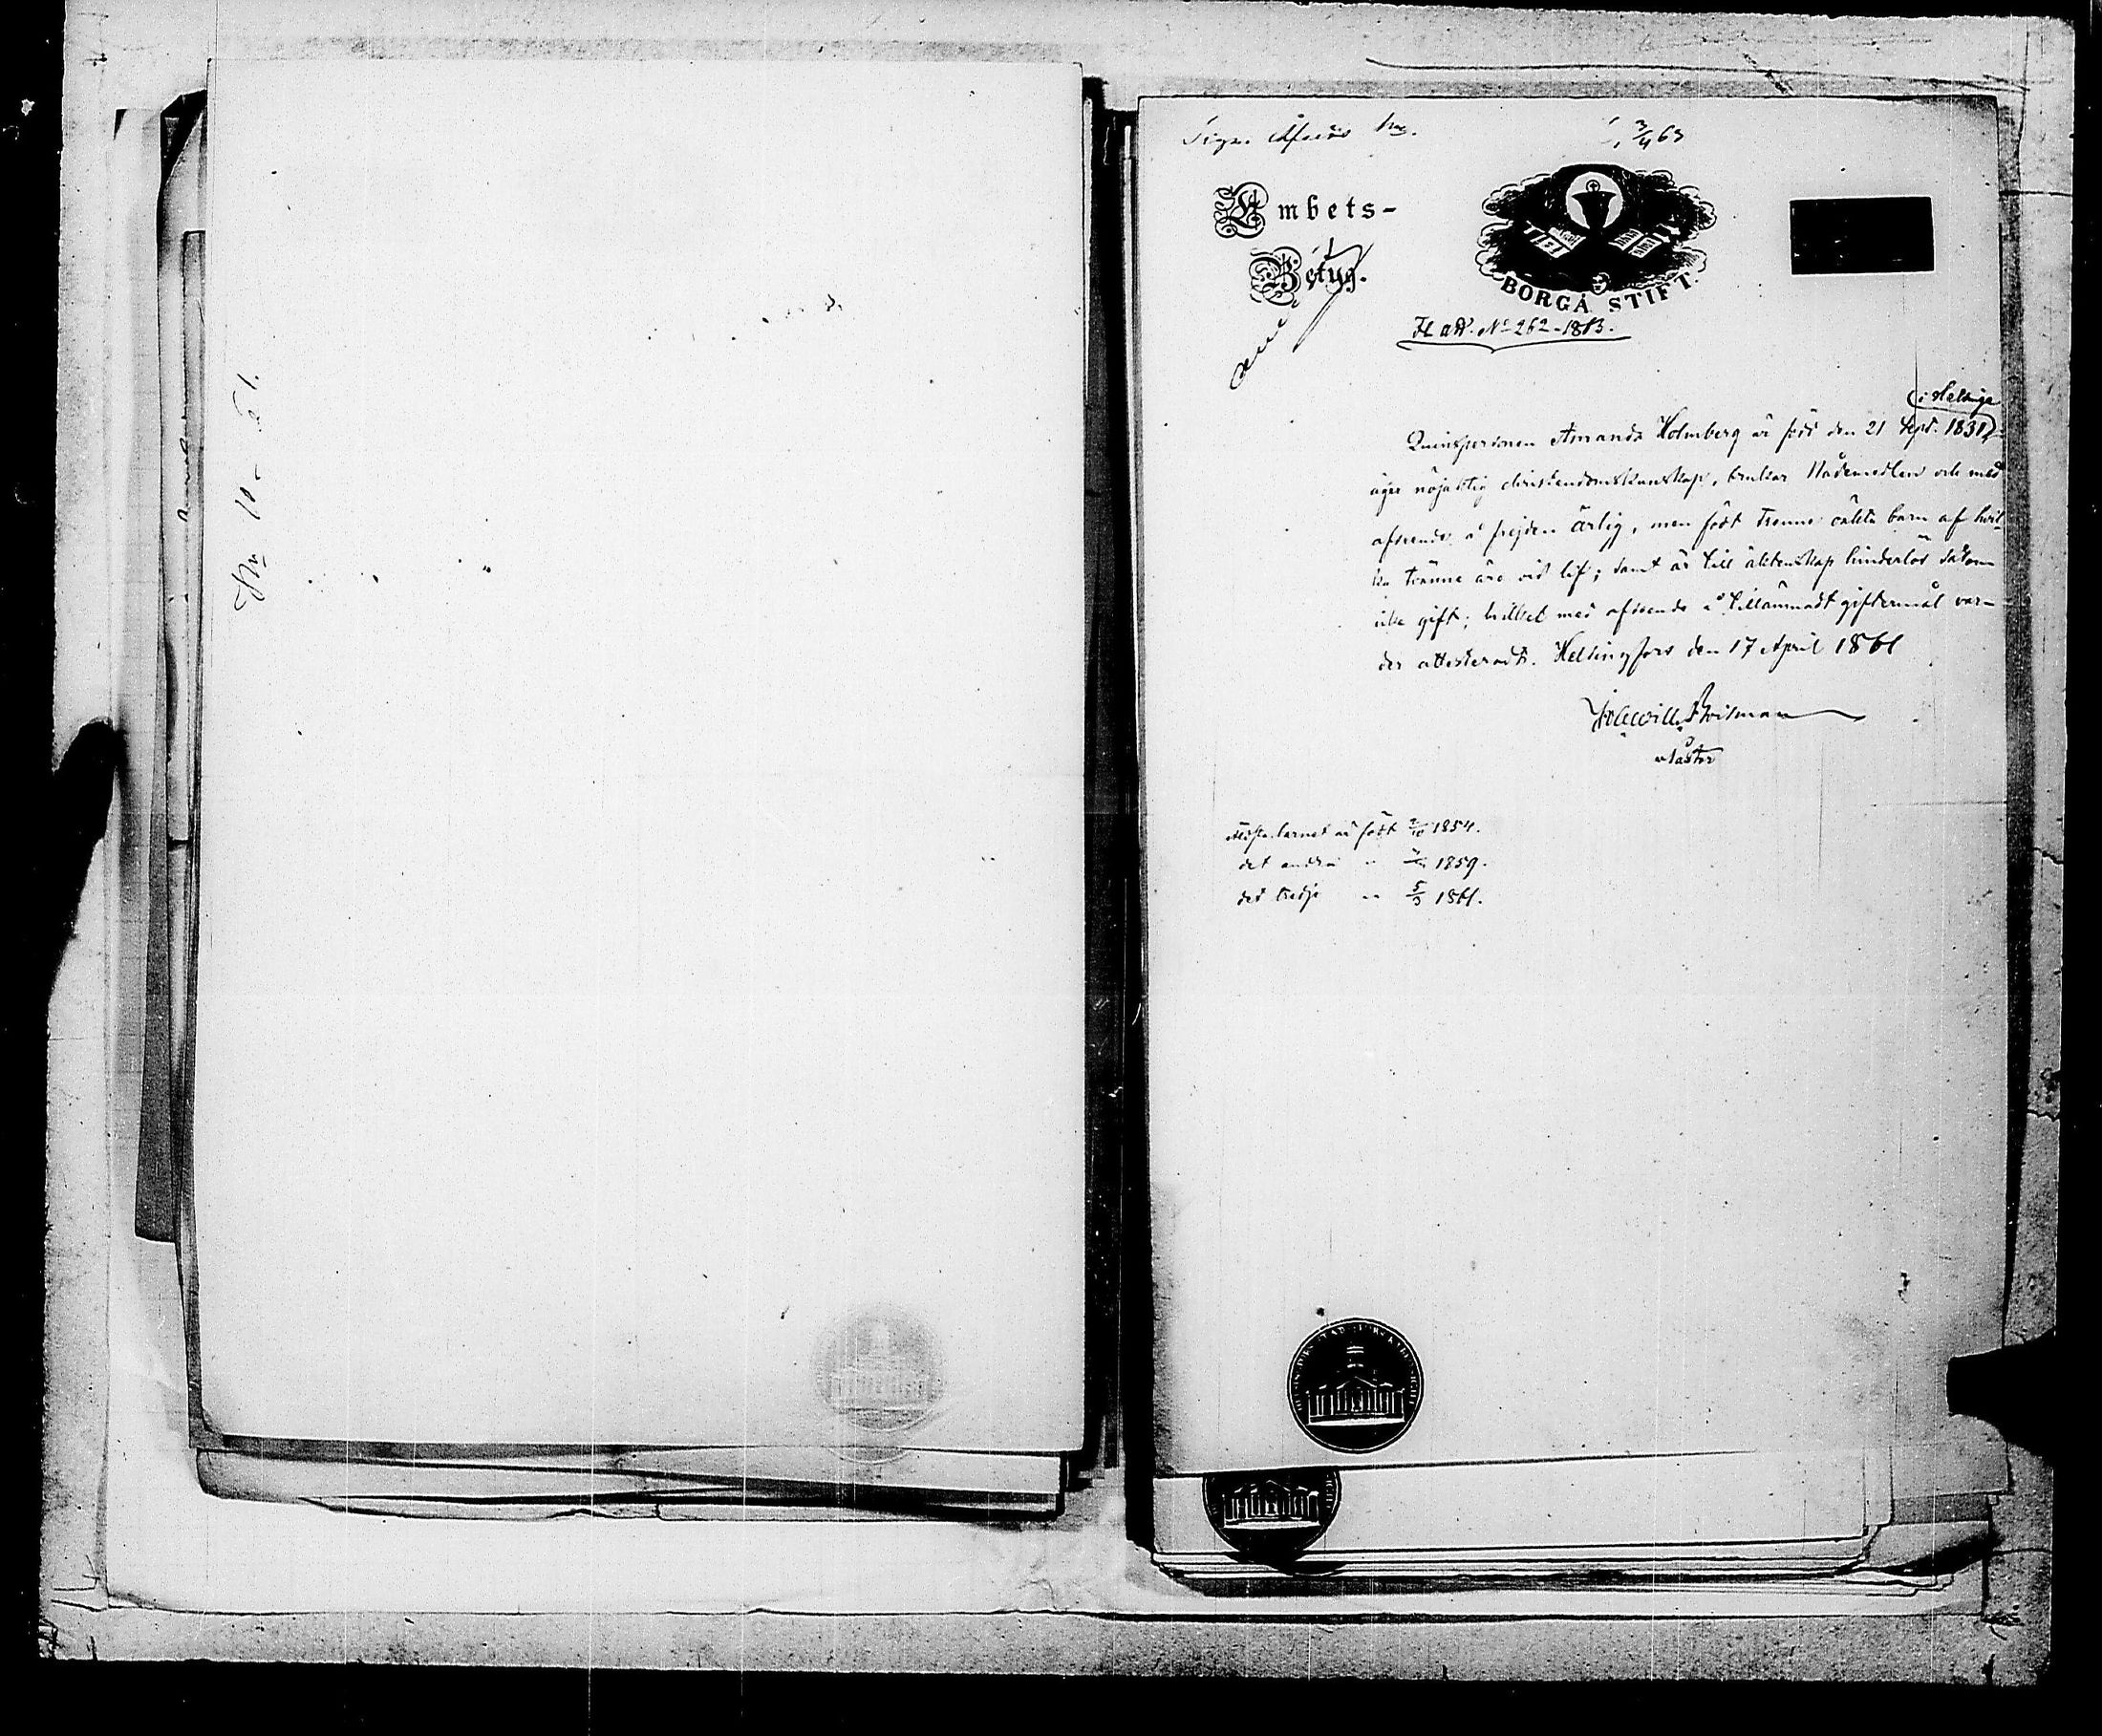 No 10 - 61.
3/4 63
Embets-
Betyg.
BORGÅ STIFT.
No 262-1813.
i Helsinge
Quinspersonen Amanda Holmberg är född den 21 Sept. 1831,
äger nöjaktig christendomskunskap, brukar Nådemedlen och med
afseende å frejden ärlig, men födt trenne oäkta barn af hvil-
ka trenne äro vid lif; samt är till äktenskap hinderlös såsom
icke gift; hvilket med afseende å tillämnadt giftermål var-
der attesteradt. Helsingfors den 17 April 1861
v Pastor
Äldsta barnet är födt 2/10 1854.
det andra " 1859.
det tredje " 5/3 1861.